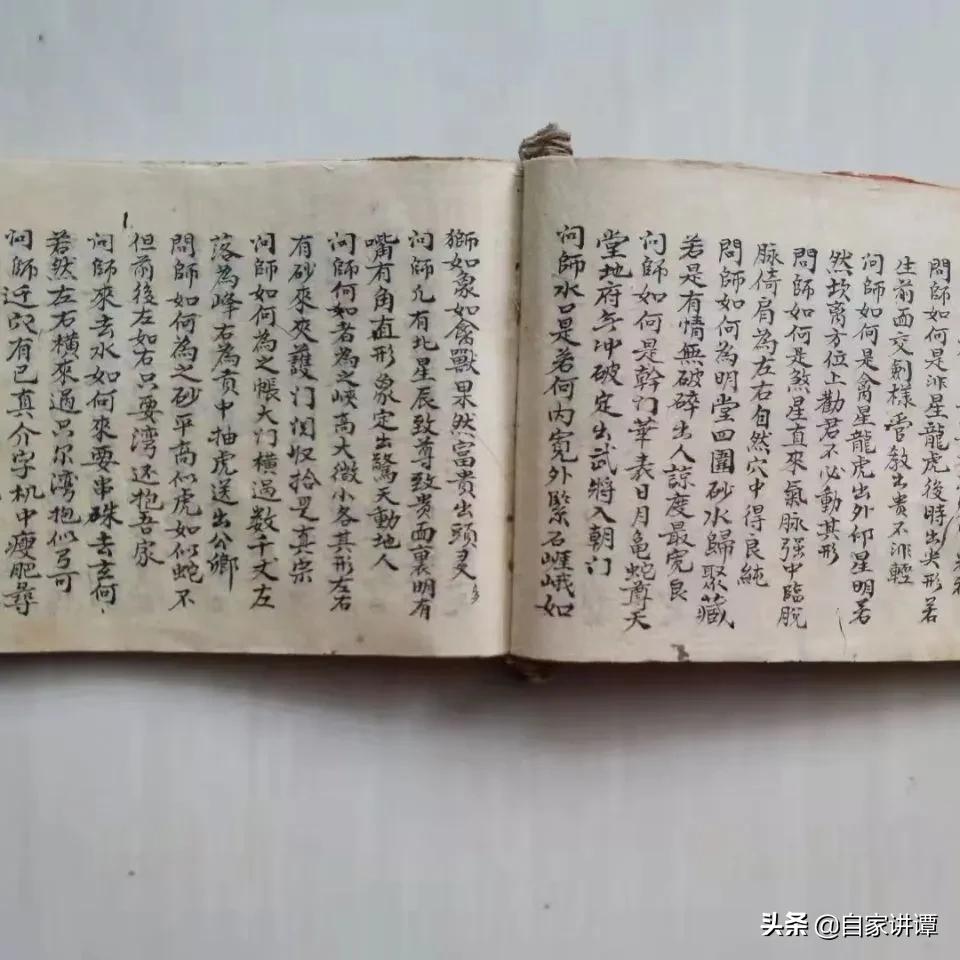 問師如何是非星龍虎後時出尖形若
生前面交劍樣管教出貴不非輕
问師如何是禽星龍虎出外仰星明若
然坎离方位上勸君不必動其形
問師如何是煞星直來氣脉强中臨脫
脉倚肩為左右自然穴中得良純
問師如何為明堂四圍砂水歸聚藏
若是有情無破碎出人諒度最宽良
问師如何是幹门華表日月亀蛇尊天
堂地府无冲破定出武將入朝门
问師水口是若何内宽外緊石崕峨如
獅如象如禽獸果然富貴出頭灵
问師凣有北星辰致尊致贵面裏明有
嘴有角直形象定出驚天動地人
问師何如者為之峡高大微小各其形左右
有砂來夾護门闭收拾是真宗
问師如何為之帳大门横過数千丈左
落為峰右為貢中抽虎送出公鄉
問師如何為之砂平高似虎如似蛇不
但前後左如右只要湾还抱吾家
问師來去水如何來要串珠去玄何
若然左右横來過只尔湾抱似弓可
问師迁穴有已真介字机中瘦肥尋
头条 @自家讲谭